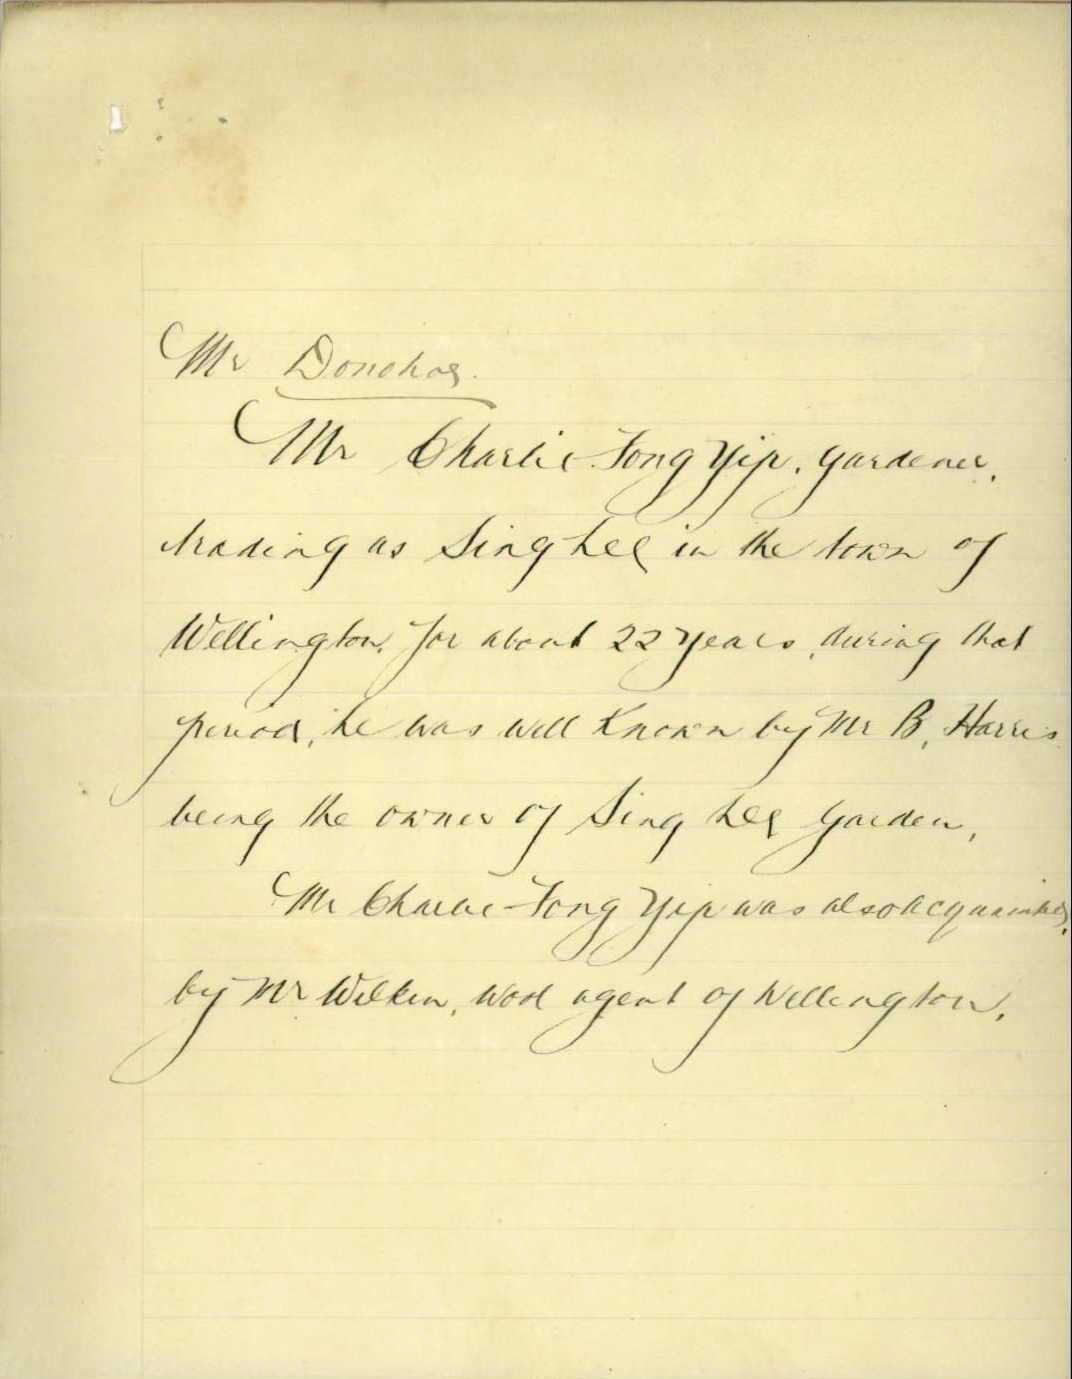 Mr Donohoe.
Mr Charlie Fong Yip, gardener,
trading as Sing Lee in the town of
Wellington, for about 22 years, during that
period, he was well known by Mr B, Harris
being the owner of Sing Lee garden,
Mr Charlie Fong Yip was also acquainted,
by Mr Wilkin, wool agent of Wellington.